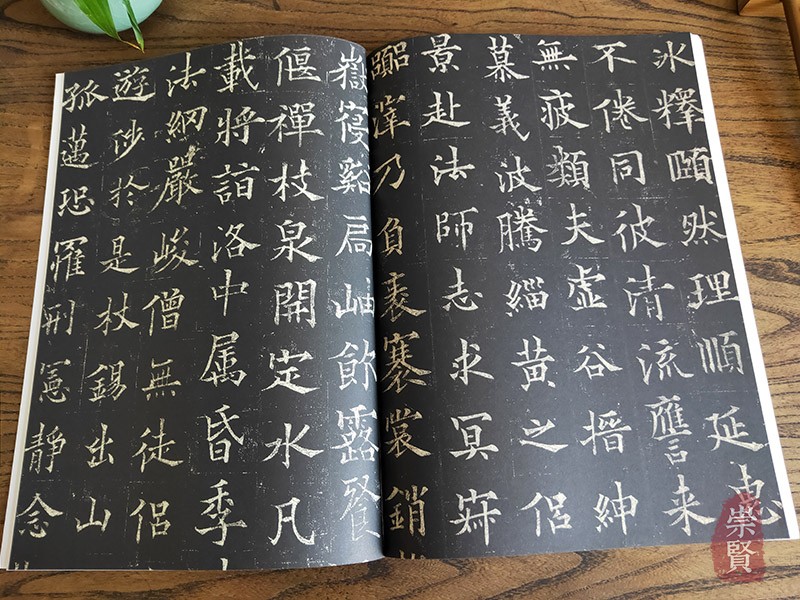 氷釋頤然理順延惠
不倦同彼清流譍来
無疲類夫虛谷搢紳
慕義波騰緇黄之侶
景赴法師志求冥寂
熙滓乃負袠褰裳銷
嶽寢谿扃岫飲露餐
偃禪枝泉開定水凡
載將詣洛中属昏季
法網嚴峻僧無徒侶
遊涉於是杖錫出山
孤邁恐罹刑憲靜念
崇賢